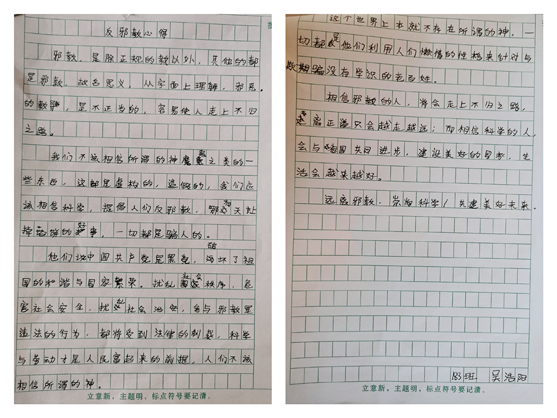 反邪教心得
邪教,是除正规的教以外,其他的都
是邪教,故名思义,从字面上理解,邪恶
的教,是不正当的,容易使人走上不归
之路。
我们不该相信所谓的神魔之类的一
些东西,这都是虚构的,造假的,我们应
该相信科学,提倡人们反邪教,天处
掉馅饼的事,一切都是骗人的。
他们说中国共产党是黑党,破坏了祖
国的和谐与国家繁荣。扰乱秩序,危
害社会安全,扰社会治安,参与邪教是
违法的行为,都将受到法律的制裁,科学
与劳动才是人民富起来的前提,人们不该
相信所谓的神。
立意新、主题明,标点符号要记清。
这个世界上本就不存在所谓的神,一
切都是他们利用人们懒惰的性格来针对与
欺骗没有学识的老百姓。
相信邪教的人,将会走上不归之路,
离正道只会越走越远;而相信科学的人
会与祖国共同进步,建设美好的国家,生
活会越来越好。
远离邪教,崇尚科学!共建美好未来。
班 吴浩阳
立意新、主题明,标点符号要记清。